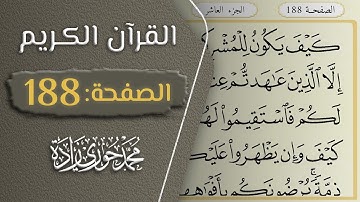 القرآن الكريم
الصفحة: 188
محمد حوري زادة
الصفحـة 188
الجزء العاشر
كَيْفَ يَكُونُ لِلْمُشْرِكِ
إِلَّا الَّذِينَ عَاهَدتُّمْ عِن
لَكُمْ فَاسْتَقِيمُوا لَهُ
كَيْفَ وَإِن يَظْهَرُوا عَلَيْكُ
ذِمَّةً يُرْضُونَكُم بِأَفْوَاهِ